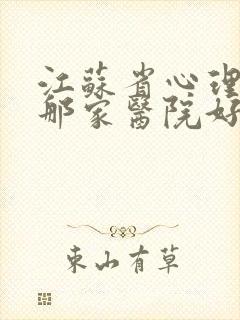 江蘇省心理
那家醫院好
東山有草